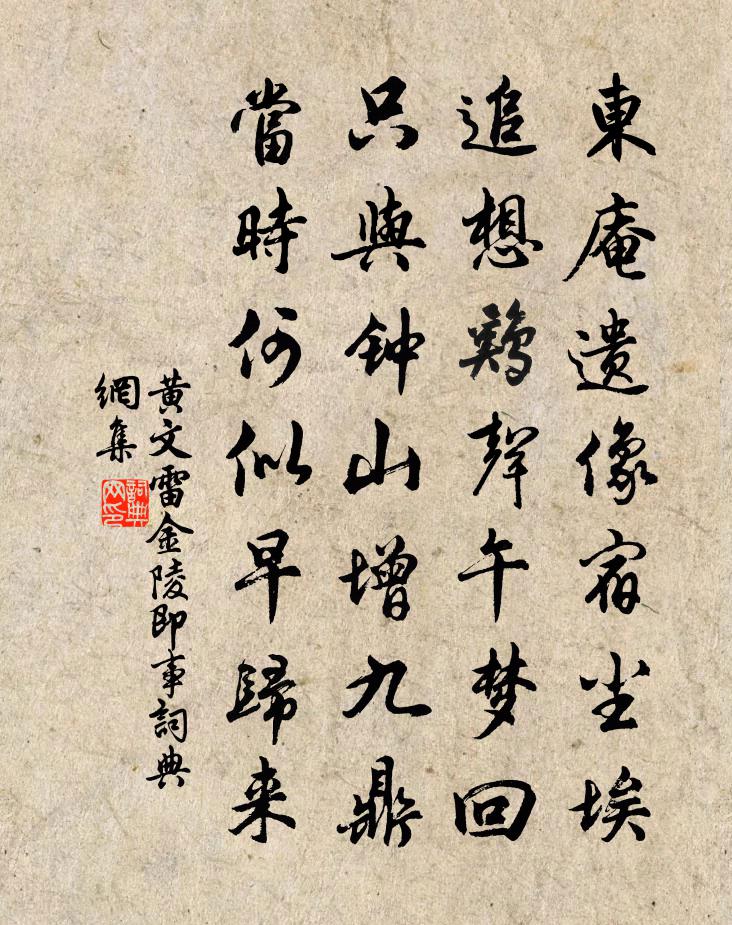 東庵遗像宿尘埃
追想鷄聲午梦回
只與钟山增九鼎
當時何似早歸来
黄文雷金陵即事詞典
網集
詞典网印